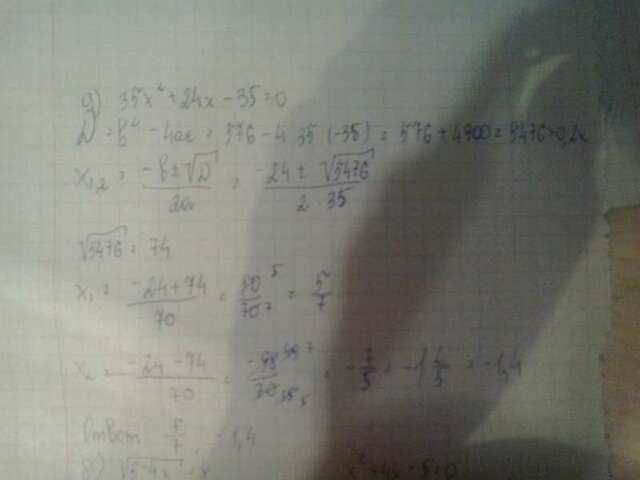 д) 35x² + 24x - 35 = 0
D = b² - 4ac = 576 - 4 35 (-35) = 576 + 4900 = 5476 > 0, 2к
x₁,₂ = (-b ± √D)/2a = (-24 ± √5476)/(2 35)
√5476 = 74
x₁ = (-24 + 74)/70 = 50 5/70 7 = 5/7
x₂ = (-24 - 74)/70 = -98 49 7/70 35 5 = -7/5 = -1 2/5 = -1,4
Ответ 5/7 -1,4
8) √5-4x = x x² + 4x - 5 = 0